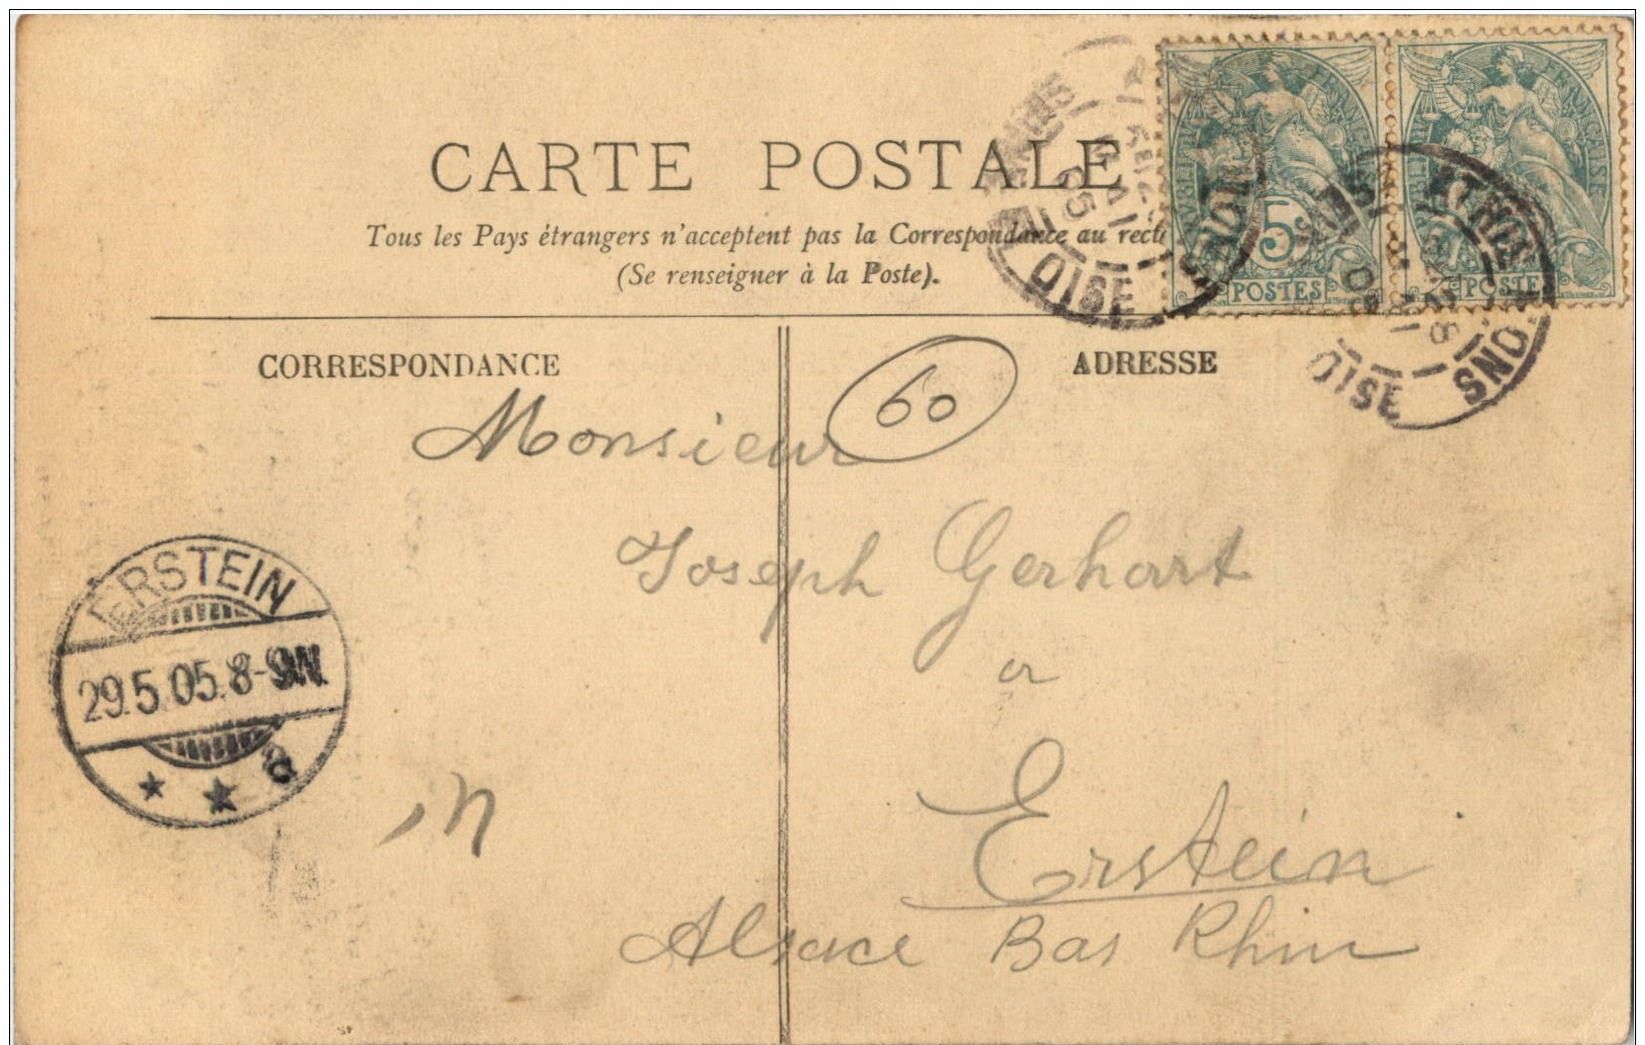 CARTE POSTALE
Tous les Pays étrangers n'acceptent pas la Correspondance au recto
(Se renseigner à la Poste).
FRANÇAISE
5
POSTES
FRANÇAISE
POSTES
OISE
OISE
CORRESPONDANCE
ADRESSE
60
Monsieur
Joseph Gerhart
a
Erstein
Alsace Bas Rhin
ERSTEIN
29.5.05.8-9N.
* * a